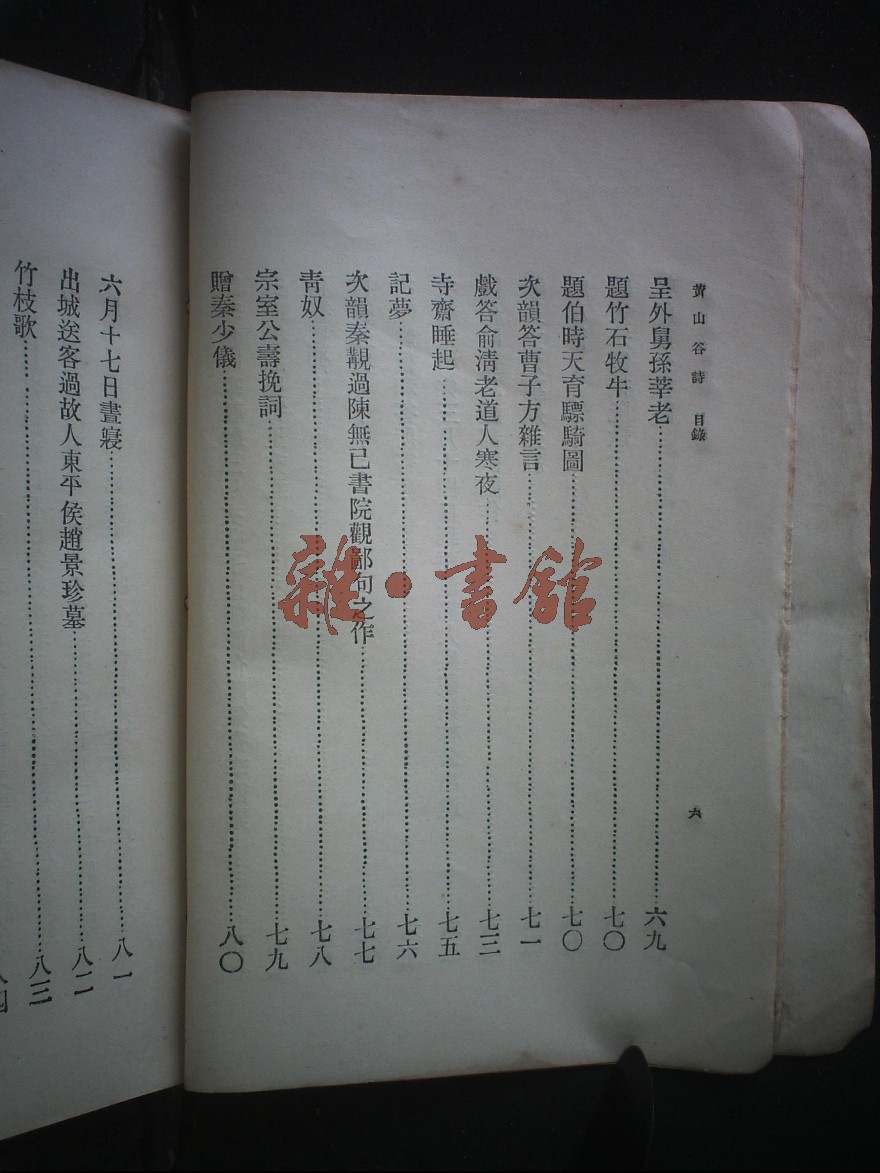 黄山谷詩 目錄
六
呈外舅孫莘老……六九
題竹石牧牛……七〇
題伯時天育驃騎圖……七〇
次韻答曹子方雜言……七一
戲答俞淸老道人寒夜……七三
寺齋睡起……七五
記夢……七六
次韻秦覯過陳無己書院觀鄙句之作……七七
靑奴……七八
宗室公壽挽詞……七九
贈秦少儀……八〇
六月十七日晝寢……八一
出城送客過故人東平侯趙景珍墓……八二
竹枝歌……八三
八四
雜·書館